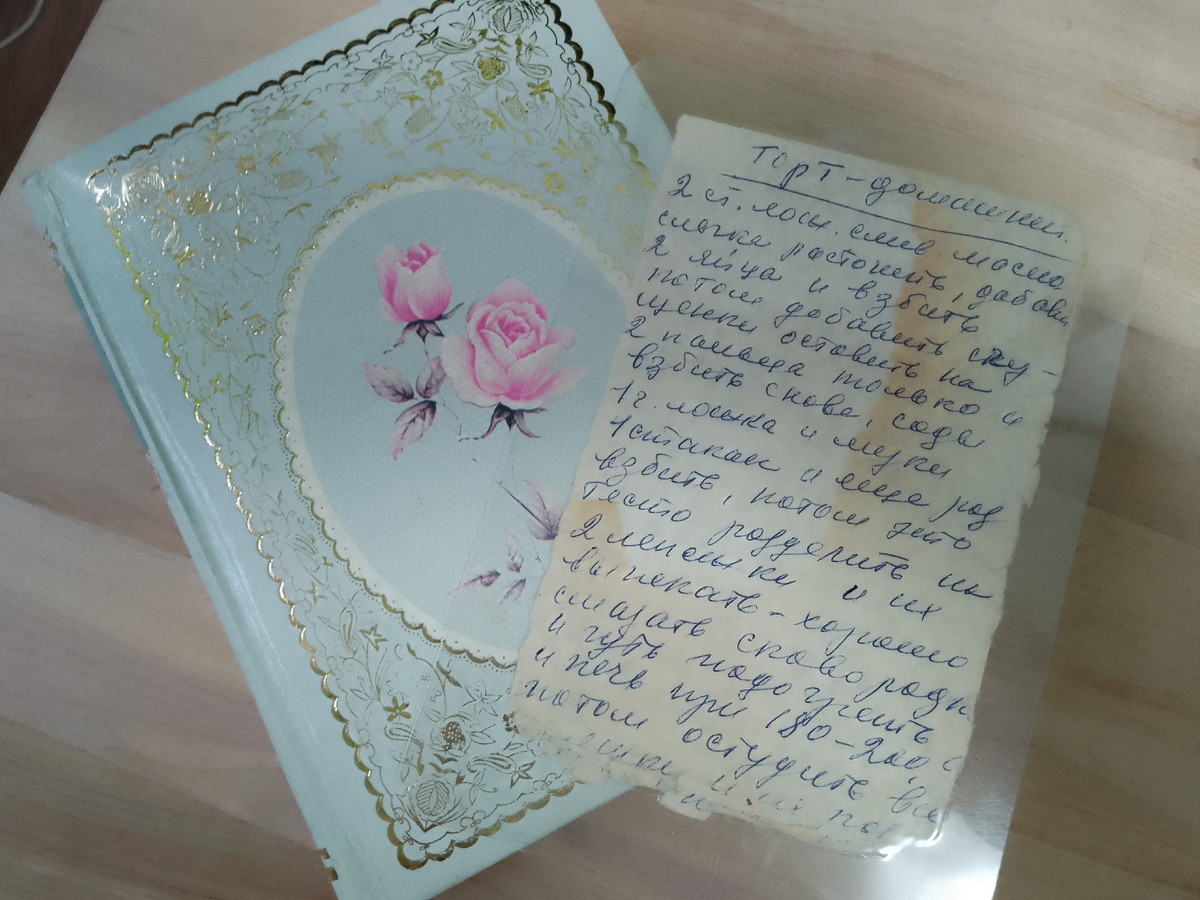 Торт-домашний.
2 ст. лож. слив. масла
слегка растопить, добави
2 яйца и взбить
потом добавить сгу-
щенки оставить на
2 пальца только и
взбить снова, соды
1 ч. ложка и муки
1 стакан и еще раз
взбить, потом это
тесто разделить на
2 лепешки и их
выпекать - хорошо
смазать сковородк
и чуть подогреть
и печь при 180-200 С
потом остудить все
и их